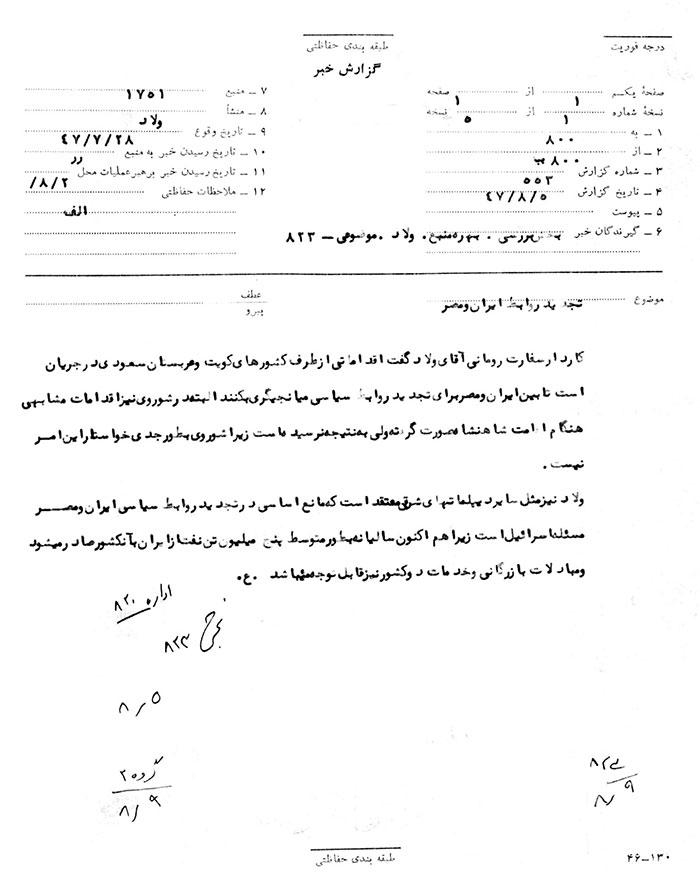 درجه فوریت
طبقه بندی حفاظتی
گزارش خبر
صفحهٔ یکم ۱ از ۱ صفحه
نسخهٔ شماره ۱ از ۵ نسخه
۱ ــ به ۸۰۰
۲ ــ از ۸۰۰ ب
۳ ــ شماره گزارش ۵۵۳
۴ ــ تاریخ گزارش ۴۷/۸/۵
۵ ــ پیوست
۶ ــ گیرندگان خبر بخش بررسی . بهره منبع . ولاد . موضوعی – ۸۲۳
۷ ــ منبع ۱۷۵۱
۸ ــ منشأ ولاد
۹ ــ تاریخ وقوع ۴۷/۷/۲۸
۱۰ ــ تاریخ رسیدن خبر به منبع رر
۱۱ ــ تاریخ رسیدن خبر برهبر عملیات محل /۸/۲
۱۲ ــ ملاحظات حفاظتی
الف
موضوع تجدید روابط ایران ومصر
عطف
پیرو
کاردار سفارت رومانی آقای ولاد گفت اقداماتی از طرف کشورهای کویت و عربستان سعودی در جریان
است تا بین ایران ومصر برای تجدید روابط سیاسی میانجیگری بکنند البته در شوروی نیز اقدامات مشابهی
هنگام اقامت شاهنشاه صورت گرفته ولی به نتیجه نرسیده است زیرا شوروی بطور جدی خواستار این امر
نیست .
ولاد نیز مثل سایر دیپلماتهای شرق معتقد است که مانع اساسی در تجدید روابط سیاسی ایران ومصر
مسئله اسرائیل است زیرا هم اکنون سالیانه بطور متوسط پنج میلیون تن نفت از ایران بآنکشور صادر میشود
ومبادلات بازرگانی وخدمات دو کشور نیز قابل توجه میباشد . ع.
اداره ۸۲۰
۸۲۳
۸٫۵
گروه ۲
۸٫۹
۴۶ــ۱۳۰
طبقه بندی حفاظتی